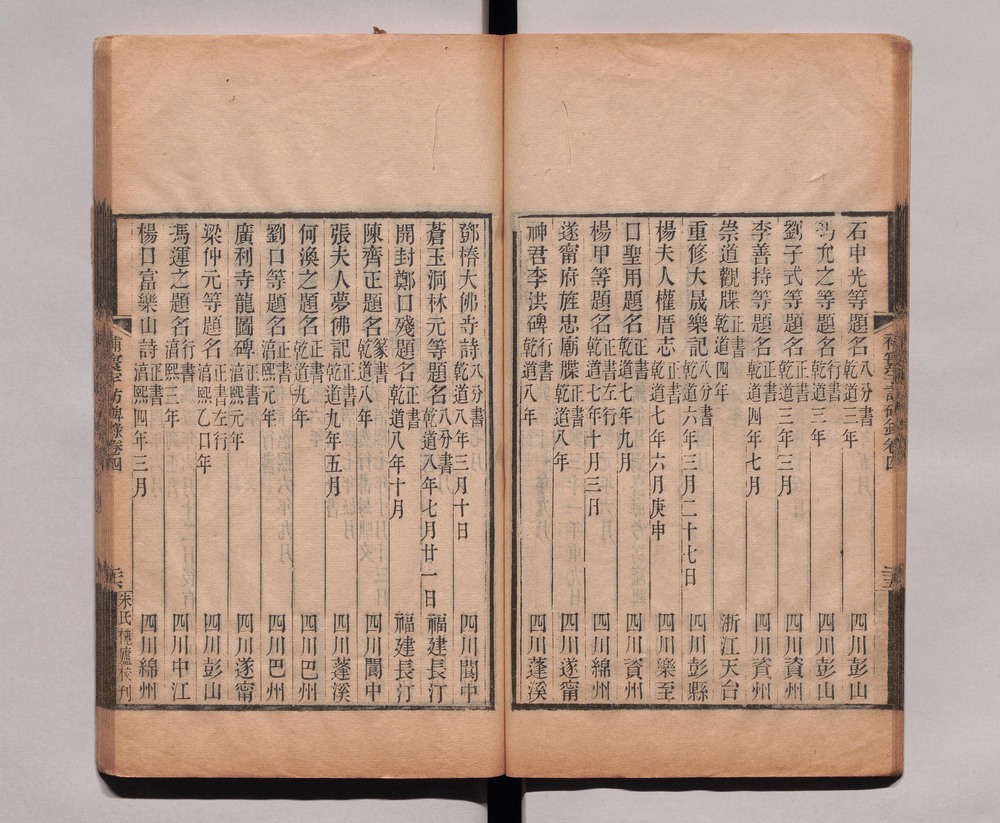 石申光等題名八分書乾道三年 四川彭山
馮允之等題名行書乾道三年 四川彭山
劉子式等題名正書乾道三年三月 四川資州
李善持等題名正書乾道四年七月 四川資州
崇道觀牒正書乾道四年 浙江天台
重修大晟樂記八分書乾道六年三月二十七日 四川彭縣
楊夫人權厝志正書乾道七年六月庚申 四川樂至
口聖用題名正書乾道七年九月 四川資州
楊甲等題名正書左行乾道七年十月三日 四川綿州
遂甯府旌忠廟牒正書乾道八年 四川遂甯
神君李洪碑行書乾道八年 四川蓬溪
鄧椿大佛寺詩八分書乾道八年三月十日 四川閬中
蒼玉洞林元等題名八分書乾道八年七月廿一日 福建長汀
開封鄭口殘題名正書乾道八年十月 福建長汀
陳齊正題名篆書乾道八年 四川閬中
張夫人夢佛記正書乾道九年五月 四川蓬溪
何渙之題名正書乾道九年 四川巴州
劉口等題名正書淳熙元年 四川巴州
廣利寺龍圖碑正書淳熙元年 四川遂甯
梁仲元等題名正書左行淳熙乙口年 四川彭山
馮運之題名行書淳熙三年 四川中江
楊口富樂山詩正書淳熙四年三月 四川綿州
補寰宇訪碑錄卷四
朱氏槐廬校刊